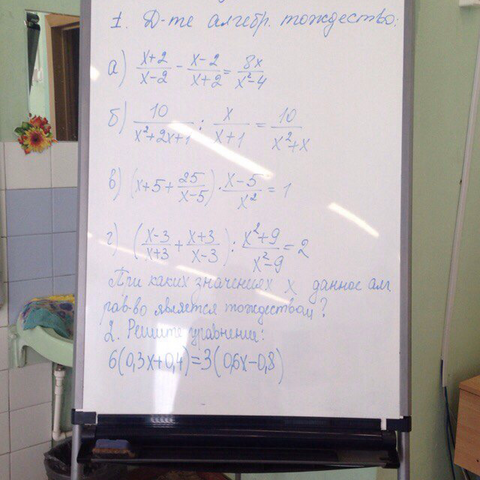 1. Д-те алгебр. тождество:
а) (x+2)/(x-2) - (x-2)/(x+2) = 8x/(x²-4)
б) 10/(x²+2x+1) : x/(x+1) = 10/(x²+x)
в) (x+5+25/(x-5)) · (x-5)/x² = 1
г) ((x-3)/(x+3) + (x+3)/(x-3)) : (x²+9)/(x²-9) = 2
При каких значениях x данное алг.
рав-во является тождеством?
2. Решите уравнение:
6(0,3x+0,4)=3(0,6x-0,8)